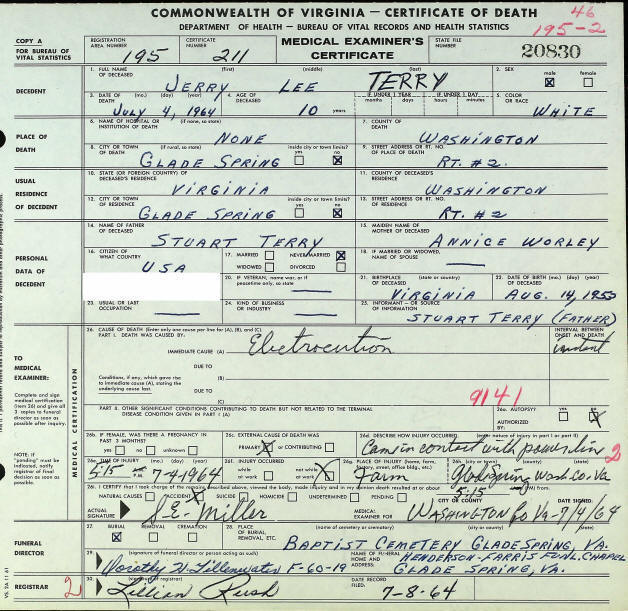 COMMONWEALTH OF VIRGINIA — CERTIFICATE OF DEATH 46
DEPARTMENT OF HEALTH — BUREAU OF VITAL RECORDS AND HEALTH STATISTICS 195-2
COPY A
FOR BUREAU OF
VITAL STATISTICS
REGISTRATION AREA NUMBER 195
CERTIFICATE NUMBER 211
MEDICAL EXAMINER'S CERTIFICATE
STATE FILE NUMBER 20830
DECEDENT
1. FULL NAME OF DECEASED (first) (middle) (last)
JERRY LEE TERRY
2. SEX male ☒ female ☐
3. DATE OF DEATH (mo.) (day) (year) JULY 4, 1964
4. AGE OF DECEASED 10 years
IF UNDER 1 YEAR months days
IF UNDER 1 DAY hours minutes
5. COLOR OR RACE WHITE
PLACE OF DEATH
6. NAME OF HOSPITAL OR INSTITUTION OF DEATH (if none, so state) NONE
7. COUNTY OF DEATH WASHINGTON
8. CITY OR TOWN OF DEATH (if rural, so state) GLADE SPRING inside city or town limits? yes ☐ no ☒
9. STREET ADDRESS OR RT. NO. OF PLACE OF DEATH RT. #2
USUAL RESIDENCE OF DECEDENT
10. STATE (OR FOREIGN COUNTRY) OF DECEASED'S RESIDENCE VIRGINIA
11. COUNTY OF DECEASED'S RESIDENCE WASHINGTON
12. CITY OR TOWN OF RESIDENCE GLADE SPRING inside city or town limits? yes ☐ no ☒
13. STREET ADDRESS OR RT. NO. OF RESIDENCE RT. #2
PERSONAL DATA OF DECEDENT
14. NAME OF FATHER OF DECEASED STUART TERRY
15. MAIDEN NAME OF MOTHER OF DECEASED ANNICE WORLEY
16. CITIZEN OF WHAT COUNTRY USA
17. MARRIED ☐ NEVER MARRIED ☒ WIDOWED ☐ DIVORCED ☐
18. IF MARRIED OR WIDOWED, NAME OF SPOUSE
20. IF VETERAN, name war, or if peacetime only, so state
21. BIRTHPLACE (state or country) VIRGINIA
22. DATE OF BIRTH (mo.) (day) (year) AUG. 14, 1953
23. USUAL OR LAST OCCUPATION
24. KIND OF BUSINESS OR INDUSTRY
25. INFORMANT - OR SOURCE OF INFORMATION STUART TERRY (FATHER)
TO MEDICAL EXAMINER:
Complete and sign medical certification (item 26) and give all 3 copies to funeral director as soon as possible after inquiry.
NOTE: IF "pending" must be indicated, notify registrar of final decision as soon as possible.
MEDICAL CERTIFICATION
26. CAUSE OF DEATH (Enter only one cause per line for (A), (B), and (C).
PART I. DEATH WAS CAUSED BY:
INTERVAL BETWEEN ONSET AND DEATH
IMMEDIATE CAUSE (A) Electrocution instant
DUE TO
Conditions, if any, which gave rise to immediate cause (A), stating the underlying cause last. (B)
DUE TO
(C)
9141
PART II. OTHER SIGNIFICANT CONDITIONS CONTRIBUTING TO DEATH BUT NOT RELATED TO THE TERMINAL DISEASE CONDITION GIVEN IN PART I (A)
26a. AUTOPSY? yes ☐ no ☒
AUTHORIZED BY:
26b. IF FEMALE, WAS THERE A PREGNANCY IN PAST 3 MONTHS? yes ☐ no ☐ unknown ☐
26c. EXTERNAL CAUSE OF DEATH WAS PRIMARY ☒ or CONTRIBUTING ☐
26d. DESCRIBE HOW INJURY OCCURRED. (enter nature of injury in part I or part II)
Came in contact with power line 2
26e. TIME OF INJURY (mo.) (day) (year) 5:15 7-4-1964
26f. INJURY OCCURRED while at work ☐ not while at work ☒
26g. PLACE OF INJURY (home, farm, factory, street, office bldg., etc.) Farm
26h. (city or town) (county) (state) Glade Spring Wash. Co. Va
26i. I CERTIFY that I took charge of the remains described above, viewed the body, made inquiry and in my opinion death resulted at or about 5:15 (M) from:
NATURAL CAUSES ☐ ACCIDENT ☒ SUICIDE ☐ HOMICIDE ☐ UNDETERMINED ☐ PENDING ☐
ACTUAL SIGNATURE S.E. Miller
MEDICAL EXAMINER FOR CITY OR COUNTY WASHINGTON Co Va
DATE SIGNED: 7/4/64
FUNERAL DIRECTOR
27. BURIAL ☒ REMOVAL ☐ CREMATION ☐
28. PLACE OF BURIAL, REMOVAL, ETC. (name of cemetery or crematory) (city or county) (state)
BAPTIST CEMETERY GLADE SPRING, VA.
29. (signature of funeral director or person acting as such)
Dorothy H. Fillenwater F-60-19
NAME OF FUNERAL HOME AND ADDRESS: HENDERSON-FARRIS FUNL. CHAPEL
GLADE SPRING, VA.
REGISTRAR 2
30. (signature of registrar) Lillian Rush
DATE RECORD FILED: 7-8-64
VS 2A 11 61